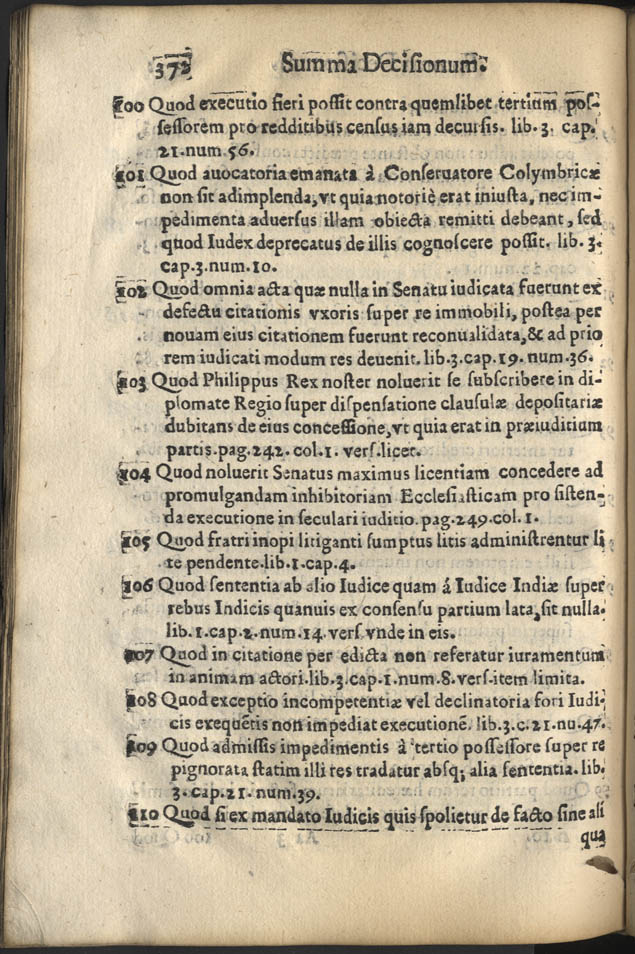 372 Summa Decisionum.
100 Quod executio fieri possit contra quemlibet tertium pos-
sessorem pro redditibus census iam decursis. lib. 3. cap.
21. num. 56.
101 Quod auocatoria emanata à Conseruatore Colymbricæ
non sit adimplenda, vt quia notoriè erat iniusta, nec im-
pedimenta aduersus illam obiecta remitti debeant, sed
quod Iudex deprecatus de illis cognoscere possit. lib. 3.
cap. 3. num. 10.
102 Quod omnia acta quæ nulla in Senatu iudicata fuerunt ex
defectu citationis vxoris super re immobili, postea per
nouam eius citationem fuerunt reconualidata, & ad prio
rem iudicati modum res deuenit. lib. 3. cap. 19. num. 36.
103 Quod Philippus Rex noster noluerit se subscribere in di-
plomate Regio super dispensatione clausulæ depositariæ
dubitans de eius concessione, vt quia erat in præiuditium
partis. pag. 242. col. 1. vers. licet.
104 Quod noluerit Senatus maximus licentiam concedere ad
promulgandam inhibitoriam Ecclesiasticam pro sisten-
da executione in seculari iuditio. pag. 249. col. 1.
105 Quod fratri inopi litiganti sumptus litis administrentur li
te pendente. lib. 1. cap. 4.
106 Quod sententia ab alio Iudice quam á Iudice Indiæ super
rebus Indicis quanuis ex consensu partium lata, sit nulla.
lib. 1. cap. 2. num. 14. vers. vnde in eis.
107 Quod in citatione per edicta non referatur iuramentum
in animam actori. lib. 3. cap. 1. num. 8. vers. item limita.
108 Quod exceptio incompetentiæ vel declinatoria fori Iudi-
cis exequẽtis non impediat executionẽ. lib. 3. c. 21. nu. 47.
109 Quod admissis impedimentis à tertio possessore super re
pignorata statim illi res tradatur absq; alia sententia. lib.
3. cap. 21. num. 39.
110 Quod si ex mandato Iudicis quis spolietur de facto sine ali
qua